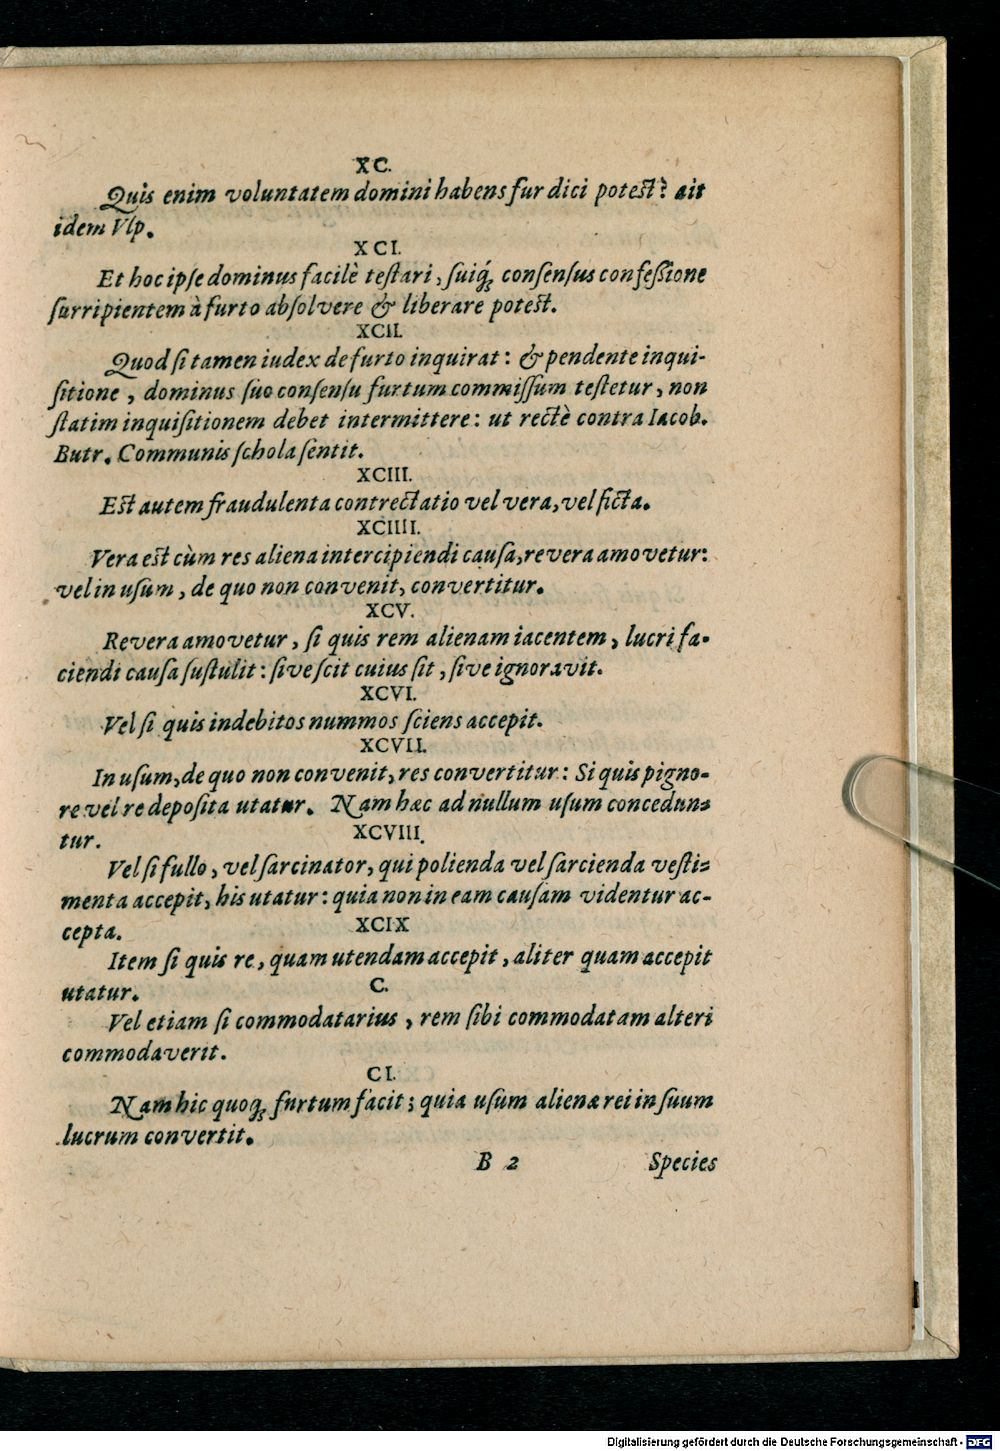 XC.
Quis enim voluntatem domini habens fur dici potest? ait
idem Vlp.
XCI.
Et hoc ipſe dominus facilè teſtari, ſuiq́ꝫ conſenſus confeſſione
ſurripientem à furto abſolvere & liberare potest.
XCII.
Quod ſi tamen iudex de furto inquirat: & pendente inqui-
ſitione, dominus ſuo conſenſu furtum commiſſum teſtetur, non
ſtatim inquiſitionem debet intermittere: ut rectè contra Iacob.
Butr. Communis ſchola ſentit.
XCIII.
Est autem fraudulenta contrectatio vel vera, vel ficta.
XCIIII.
Vera est cùm res aliena intercipiendi cauſa, revera amovetur:
vel in uſum, de quo non convenit, convertitur.
XCV.
Revera amovetur, ſi quis rem alienam iacentem, lucri fa-
ciendi cauſa ſuſtulit: ſive ſcit cuius ſit, ſive ignoravit.
XCVI.
Vel ſi quis indebitos nummos ſciens accepit.
XCVII.
In uſum, de quo non convenit, res convertitur: Si quis pigno-
re vel re depoſita utatur. Nam hæc ad nullum uſum concedun-
tur.
XCVIII.
Vel ſi fullo, vel ſarcinator, qui polienda vel ſarcienda veſti-
menta accepit, his utatur: quia non in eam cauſam videntur ac-
cepta.
XCIX
Item ſi quis re, quam utendam accepit, aliter quam accepit
utatur.
C.
Vel etiam ſi commodatarius, rem ſibi commodatam alteri
commodaverit.
CI.
Nam hic quoqꝫ furtum facit; quia uſum alienæ rei in ſuum
lucrum convertit.
B 2
Species
Digitalisierung gefördert durch die Deutsche Forschungsgemeinschaft - DFG